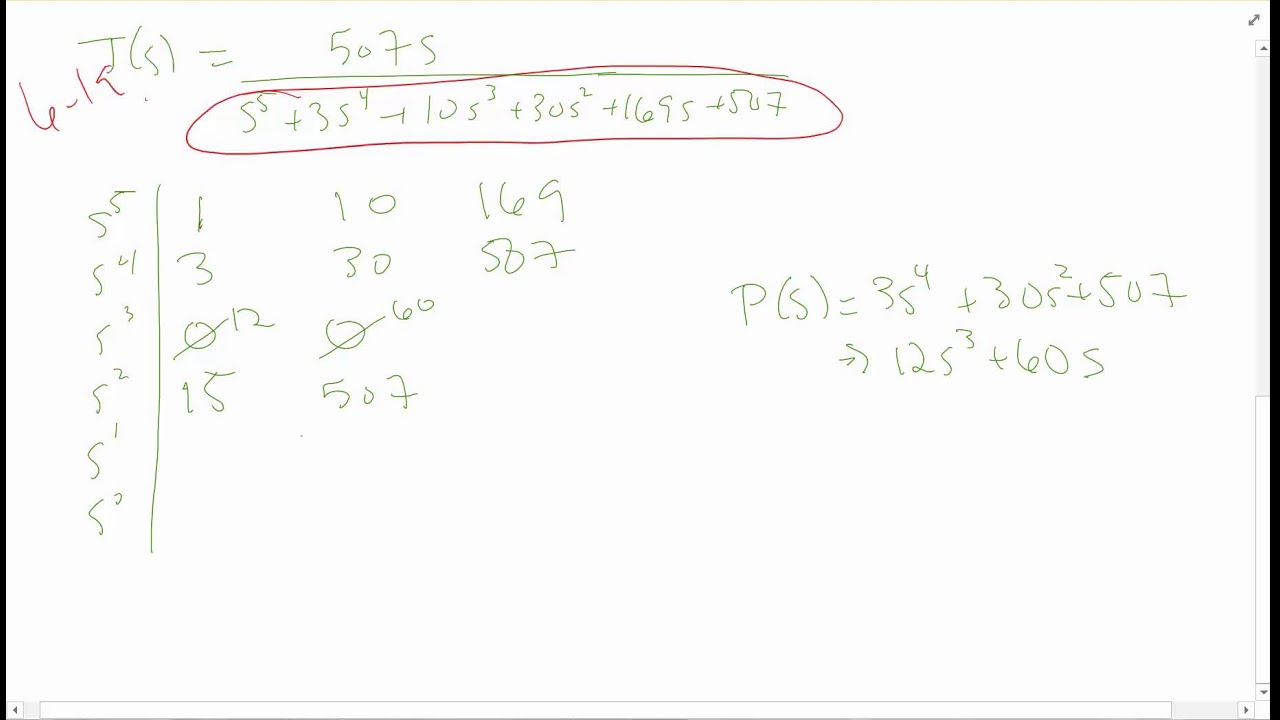 T(s) = 507s
6-19
s⁵ + 3s⁴ + 10s³ + 30s² + 169s + 507
s⁵ 1 10 169
s⁴ 3 30 507
s³ 0 12 0 60
s² 15 507
s¹
s⁰
P(s) = 3s⁴ + 30s² + 507
⇒ 12s³ + 60s